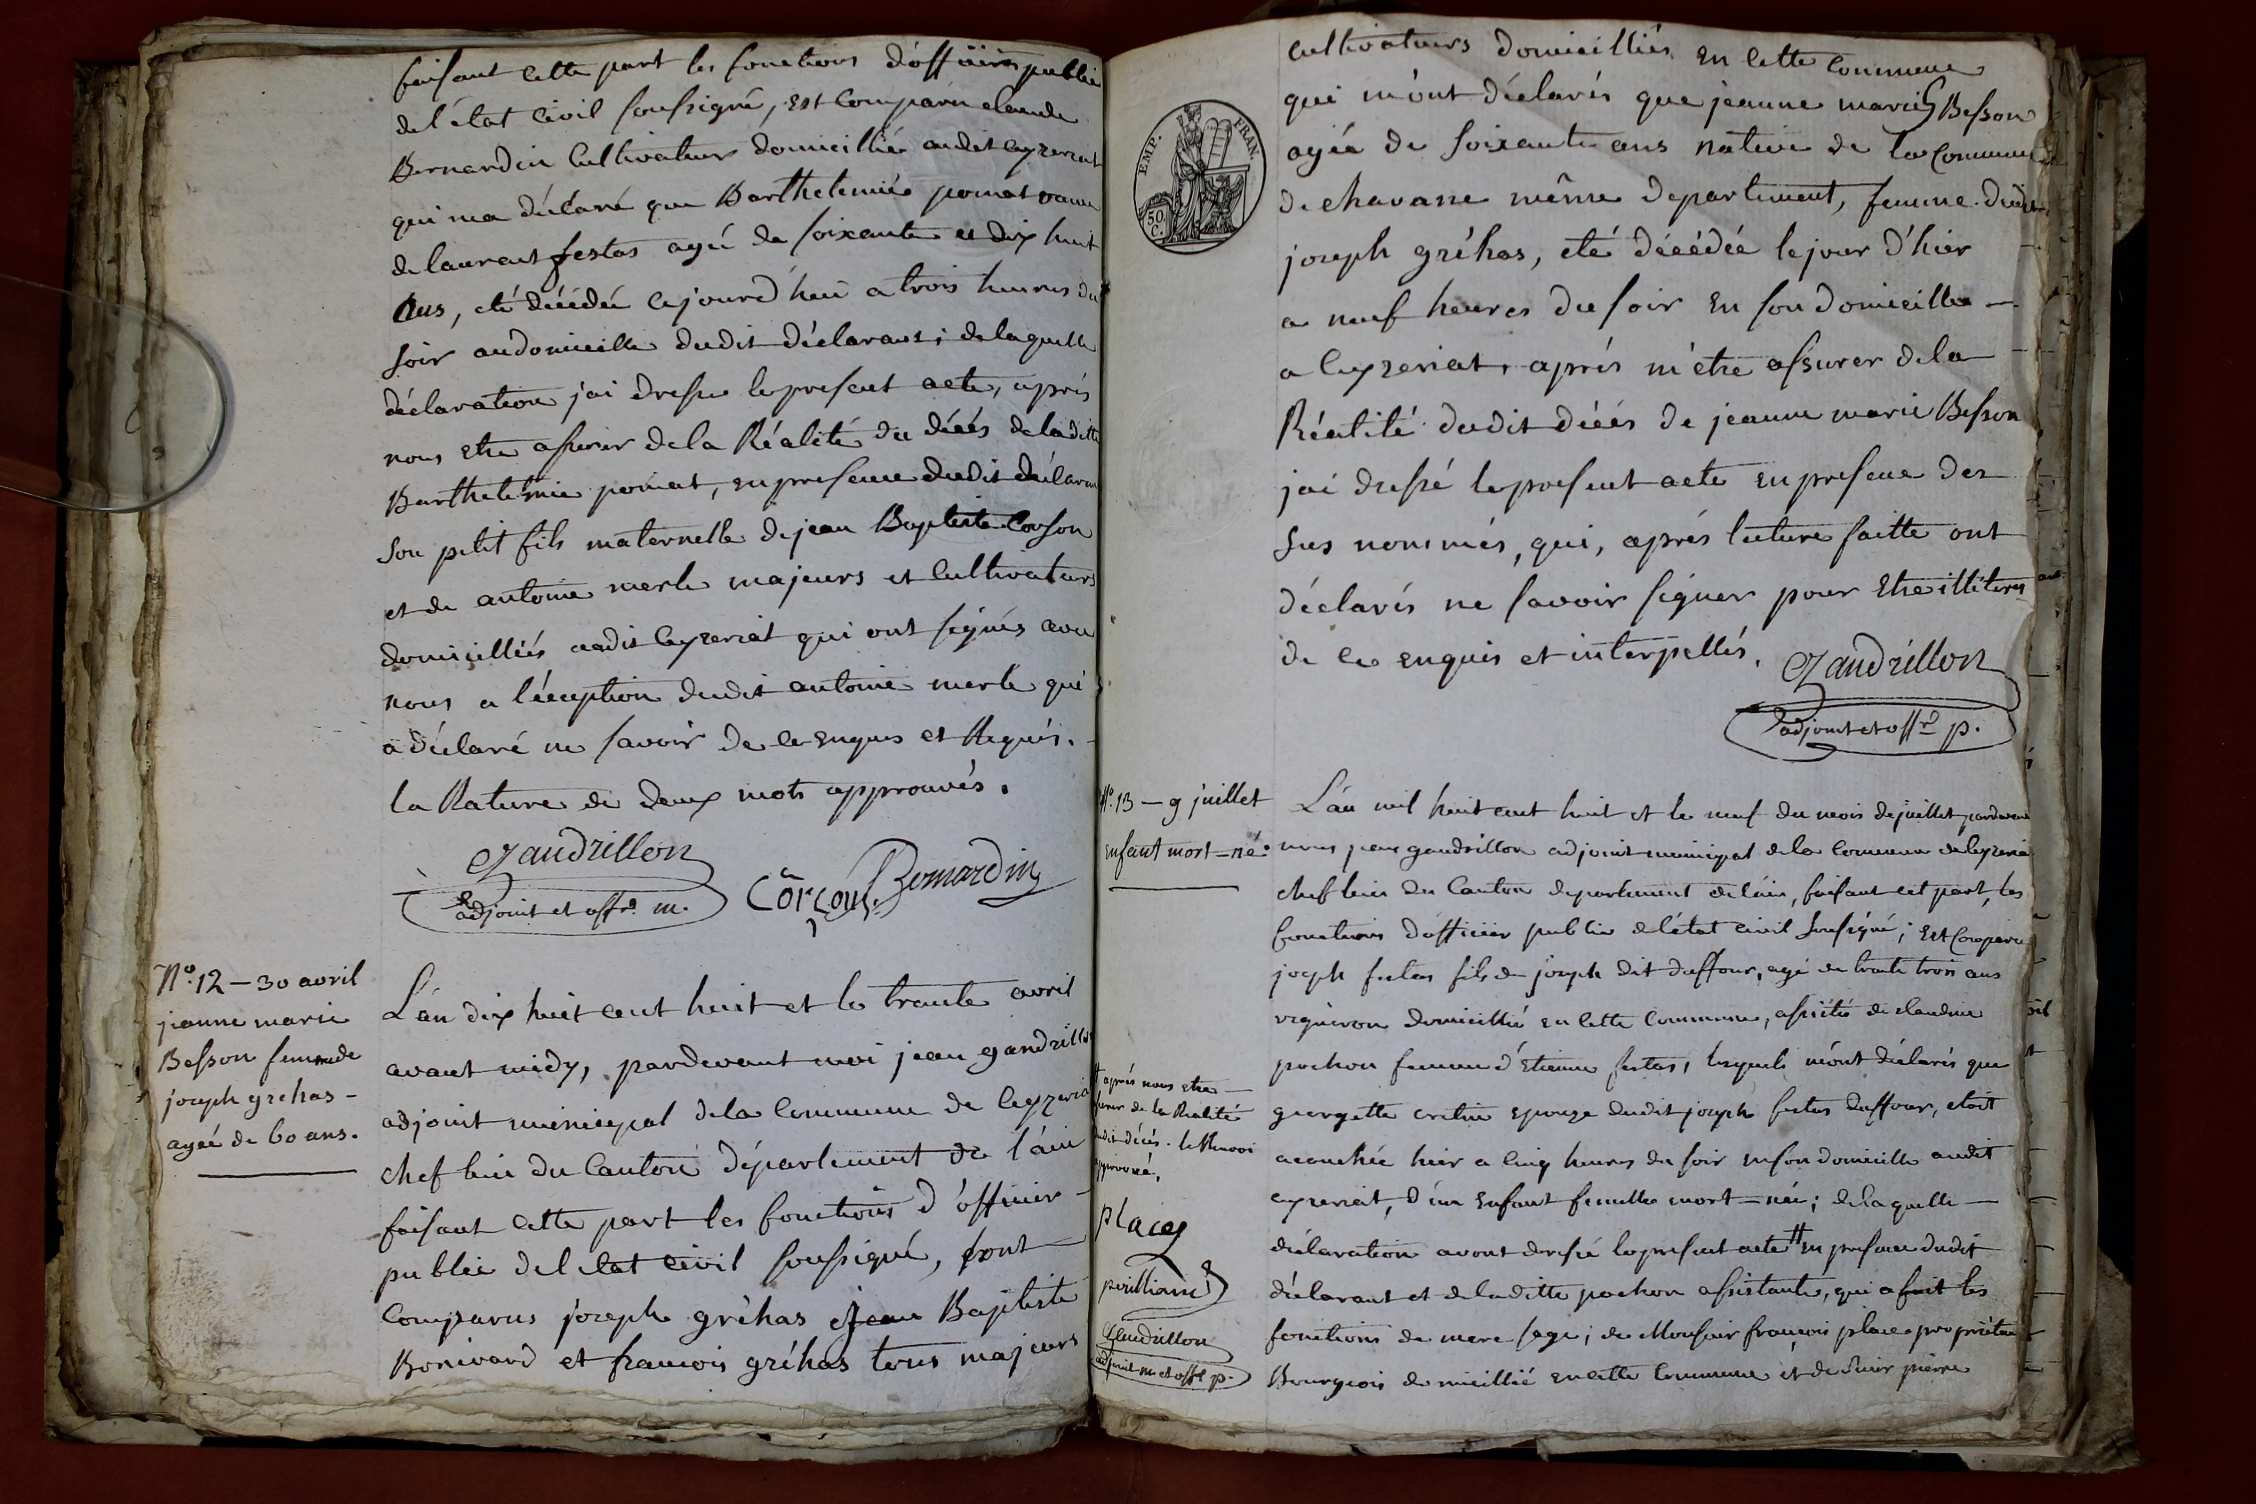 faisant cette part les fonctions d'officier public
de l'état civil soussigné, Est Comparu claude
Bernardin Cultivateur domicillié audit Ceyzeriat
qui ma déclaré que Barthelemie poncet veuve
de laurent festas agée de soixante et dix huit
Ans, eté décédée cejourd'hui a trois heures du
soir audomicille dudit déclarant; delaquelle
déclaration jai dressé le present acte, après
nous etre assurer dela Réalité du décés de ladite
Barthelémie poncet, en presence dudit déclarant
son petit fils maternelle de jean Baptiste
et de antoine merle majeurs et Cultivateurs
domicilliés audit Ceyzeriat qui ont signés avec
nous a l'éception dudit antoine merle qui
a déclaré ne savoir de ce enquis et Requis.
la Rature de deux mots approuvés.
Gaudrillon
adjoint et offr. m.
Bernardin
N°. 12 – 30 avril
jeanne marie
Besson femme de
joseph gréhas –
agée de 60 ans.
L'an dix huit cent huit et le trente avril
avant midy, pardevant moi jean gaudrillon
adjoint municipal dela Commune de Ceyzeriat
chef lieu du Canton département de l'ain
faisant cette part les fonctions d'officier
public del etat civil soussigné, sont
Comparus joseph gréhas jean Baptiste
Bonivard et francois gréhas tous majeurs
EMP. FRAN.
50 C.
Cultivateurs domicilliés En cette Commune
qui m'ont déclarés que jeanne marie Besson
agée de soixante ans native de la Commune
de chavane même departement, femme dudit
joseph gréhas, eté décédée le jour d'hier
a neuf heures du soir En son domicille –
a Ceyzeriat, aprés m'etre assurer dela
Réalité dudit décés de jeanne marie Besson
jai dressé le present acte en presence des
sus nommés, qui, aprés lecture faitte ont
déclarés ne savoir signer pour Etre illiterés
de ce enquis et interpellés.
Gaudrillon
adjoint et offr p.
N°. 13 – 9 juillet
enfant mort = né.
L'an mil huit cent huit et le neuf du mois de juillet pardevant
nous jean gaudrillon adjoint municipal dela Commune de Ceyzeriat
chef lieu du Canton departement de l'ain, faisant cet part, les
fonctions d'officier public de l'état civil soussigné; Est Comparu
joseph festas fils de joseph dit duffour, agé de trente trois ans
vigneron domicillié en cette Commune, assistée de claudine
pochon femme d'Etienne festas, lesquels m'ont déclarés que
georgette cretin epouze dudit joseph festas duffour, etoit
acouchée hier a Cinq heures du soir en son domicille audit
Ceyzeriat, d'un Enfant femelle mort = née; delaquelle –
déclaration avont dressé le present acte # en presence dudit
déclarant et deladitte pochon assistante, qui a fait les
fonctions de mere sage; de Monsieur francois place propriétaire
Bourgeois domicillié en cette Commune et de Sieur pierre
# aprés nous etre –
assurer de la Réalité
dudit décés. le Renvoi
approuvé.
place
Gaudrillon
adjoint m. et offr p.